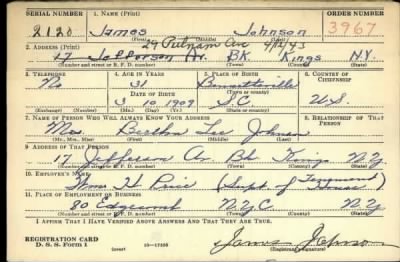 SERIAL NUMBER 1. NAME (Print) ORDER NUMBER
2120 James Johnson 3967
(First) (Middle) (Last)
24 Putnam Ave 4/12/43
2. ADDRESS (Print)
17 Jefferson Av. BK. Kings N.Y.
(Number and street or R. F. D. number) (Town) (County) (State)
3. TELEPHONE 4. AGE IN YEARS 5. PLACE OF BIRTH 6. COUNTRY OF CITIZENSHIP
No 31 Bennettsville
DATE OF BIRTH (Town or county)
3 10 1909 S.C. U.S.
(Exchange) (Number) (Mo.) (Day) (Yr.) (State or country)
7. NAME OF PERSON WHO WILL ALWAYS KNOW YOUR ADDRESS 8. RELATIONSHIP OF THAT PERSON
Mrs. Bertha Lee Johnson
(Mr., Mrs., Miss) (First) (Middle) (Last)
9. ADDRESS OF THAT PERSON
17 Jefferson Av Bk Kings N.Y.
(Number and street or R. F. D. number) (Town) (County) (State)
10. EMPLOYER'S NAME
Wm H. Price (Supt of House)
11. PLACE OF EMPLOYMENT OR BUSINESS
80 Edgecomb N.Y.C N.Y.
(Number and street or R. F. D. number) (Town) (County) (State)
I AFFIRM THAT I HAVE VERIFIED ABOVE ANSWERS AND THAT THEY ARE TRUE.
REGISTRATION CARD
D. S. S. Form 1 (over) 16—17105 James Johnson
(Registrant's signature)